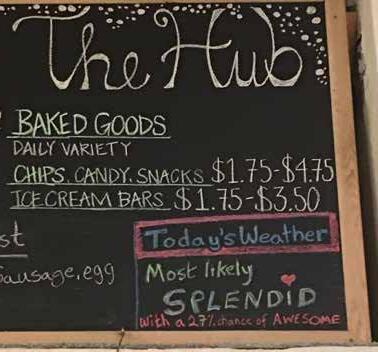 The Hub
BAKED GOODS
DAILY VARIETY
CHIPS, CANDY, SNACKS $1.75-$4.75
ICE CREAM BARS $1.75-$3.50
st
Sausage, egg
Today's Weather
Most likely
SPLENDID
with a 27% chance of AWESOME